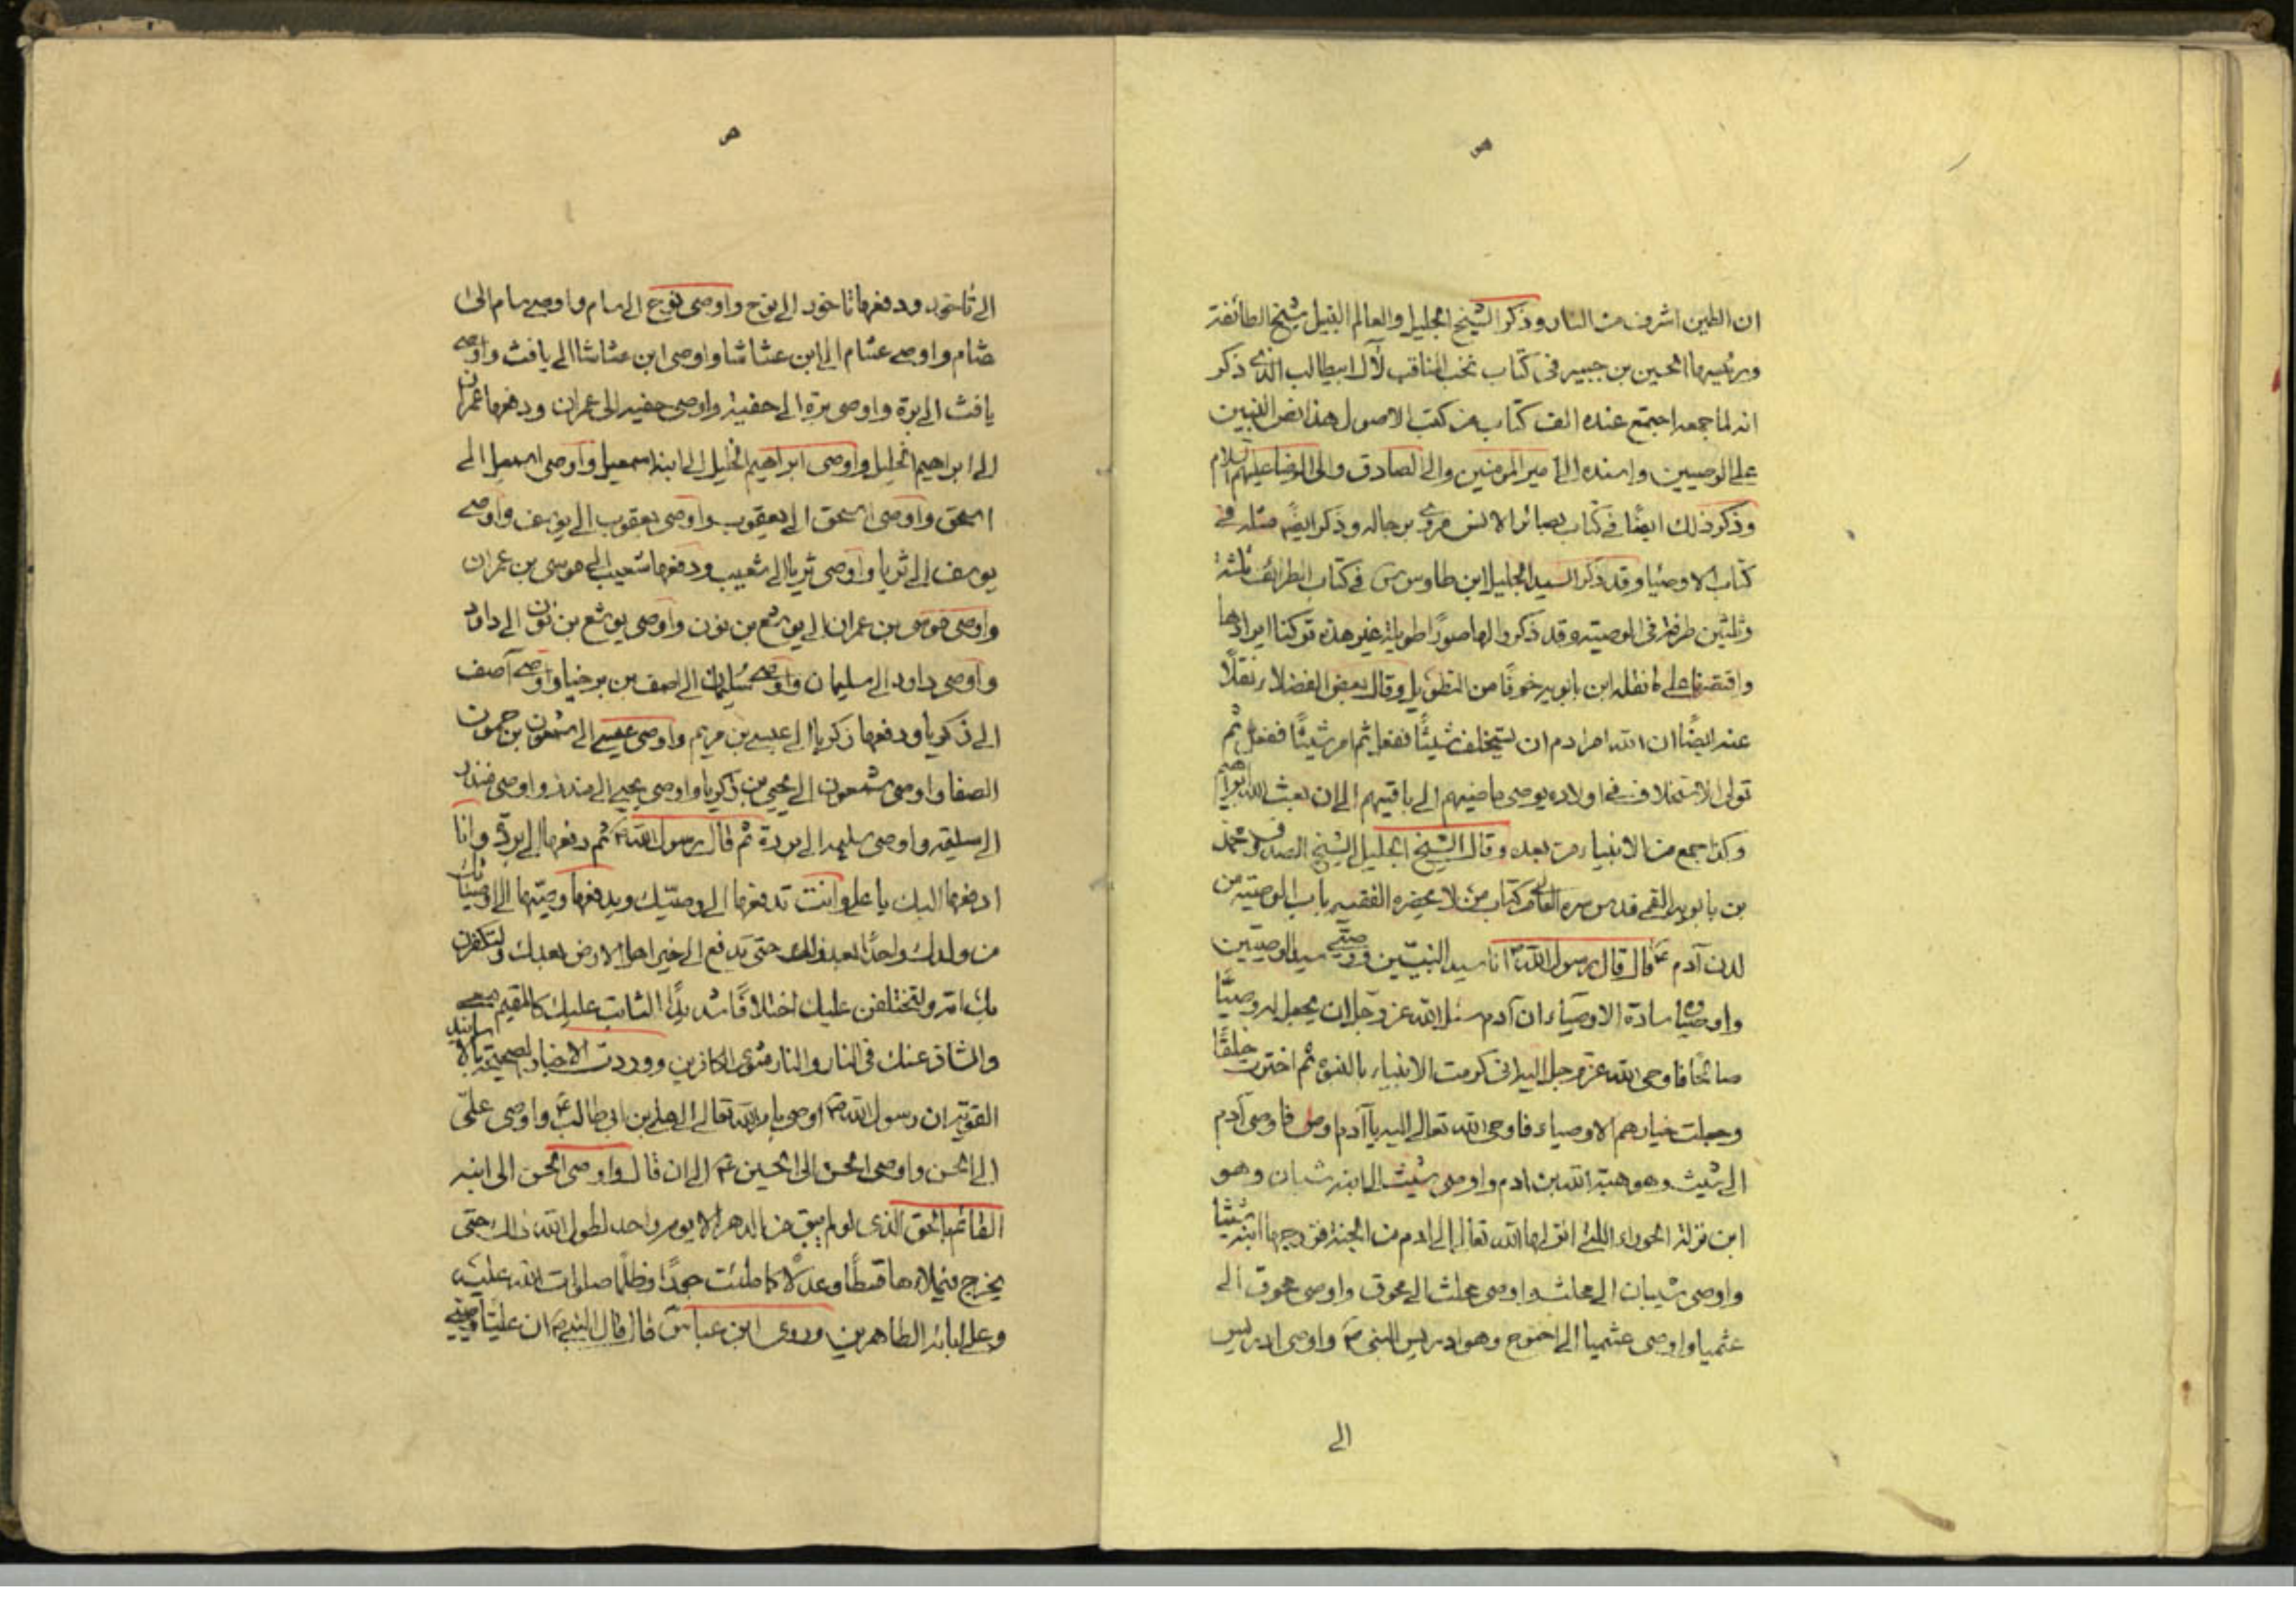 ان الطين اشرف من النار وذكر الشيخ الجليل والعالم النبيل شيخ الطائفة
ورئيسها الحسين بن جبير في كتاب نخب المناقب لآل ابيطالب الذي ذكر
انه لما جمعه اجتمع عنده الف كتاب من كتب الاصول هذا نص النبيين
على الوصيين واسنده الى امير المؤمنين والى الصادق والى الرضا عليهم السلام
وذكر ذلك ايضًا في كتاب بصائر الانس مروى برجاله وذكر ايضًا مثله في
كتاب الاوصيا وقد ذكر السيد الجليل ابن طاوس في كتاب الطرائف ثلثة
وثلثين طرفة في الوصية وقد ذكروا لها صورًا طويلة غير هذه تركنا ايرادها
واقتصرنا على ما نقله ابن بابويه خوفًا من التطويل وقال بعض الفضلاء نقلًا
عنه ايضًا ان الله امر ادم ان يستخلف شيثًا ففعل ثم امر شيثًا ففعل ثم
تولى الاستخلاف في اولاده يوصى ماضيهم الى باقيهم الى ان بعث الله ابراهيم
وكذا جمع من الانبياء من بعده وقال الشيخ الجليل الشيخ الصدوق محمد
بن بابويه القمي قدس سره كتاب من لا يحضره الفقيه باب الوصية من
لدن آدم ع قال قال رسول الله ص انا سيد النبيين ووصيي سيد الوصيين
واوصياؤه سادة الاوصياء ان آدم سئل الله عز وجل ان يجعل له وصيًّا
صالحًا فاوحى الله عز وجل اليه انى كرمت الانبياء بالنبوة ثم اخترت خلقًا
وجعلت خيارهم الاوصياء فاوحى الله تعالى اليه يا آدم اوص فاوصى آدم
الى شيث وهو هبة الله بن ادم واوصى شيث الى ابنه شبان وهو
ابن نزلة الحوراء التي انزلها الله تعالى الى ادم من الجنة فزوجها ابنه شيثا
واوصى شبان الى محلث واوصى محلث الى محوق واوصى محوق الى
عثميا واوصى عثميا الى اخنوخ وهو ادريس النبي ع واوصى ادريس
الى
الى ناخور ودفعها ناخور الى نوح واوصى نوح الى سام واوصى سام الى
عثام واوصى عثام الى ابن عثاشا واوصى ابن عثاشا الى يافث واوصى
يافث الى برة واوصى برة الى حفية واوصى حفيه الى عمران ودفعها عمران
الى ابراهيم الخليل واوصى ابراهيم الخليل الى ابنه اسمعيل واوصى اسمعيل الى
اسحق واوصى اسحق الى يعقوب واوصى يعقوب الى يوسف واوصى
يوسف الى ثريا واوصى ثريا الى شعيب ودفعها شعيب الى موسى بن عمران
واوصى موسى بن عمران الى يوشع بن نون واوصى يوشع بن نون الى داود
واوصى داود الى سليمان واوصى سليمان الى اصف بن برخيا واوصى آصف
الى زكريا ودفعها زكريا الى عيسى بن مريم واوصى عيسى الى شمعون بن حمون
الصفا واوصى شمعون الى يحيى بن زكريا واوصى يحيى الى منذر واوصى منذر
الى سليمة واوصى سليمة الى بردة ثم قال رسول الله ص ثم دفعها الى بردة وانا
ادفعها اليك يا على وانت تدفعها الى وصيك ويدفعها وصيك الى اوصيائك
من ولدك واحدًا بعد واحد حتى تدفع الى خير اهل الارض بعدك ولتكفرن
بك امة ولتختلفن عليك اختلافًا شديدًا الثابت عليك كالمقيم معي
والشاذ عنك في النار والنار مثوى الكافرين ووردت الاخبار الصحيحة بالاسانيد
القوية ان رسول الله ص اوصى بامر الله تعالى الى على بن ابى طالب ع واوصى على
الى الحسن واوصى الحسن الى الحسين ع الى ان قال واوصى الحسن الى ابنه
القائم بالحق الذى لو لم يبق من الدهر الا يوم واحد لطول الله ذالك حتى
يخرج فيملاءها قسطًا وعدلًا كما ملئت جورًا وظلمًا صلوات الله عليه
وعلى ابائه الطاهرين وروى ابن عباس قال قال النبي ص ان عليًّا وصيي